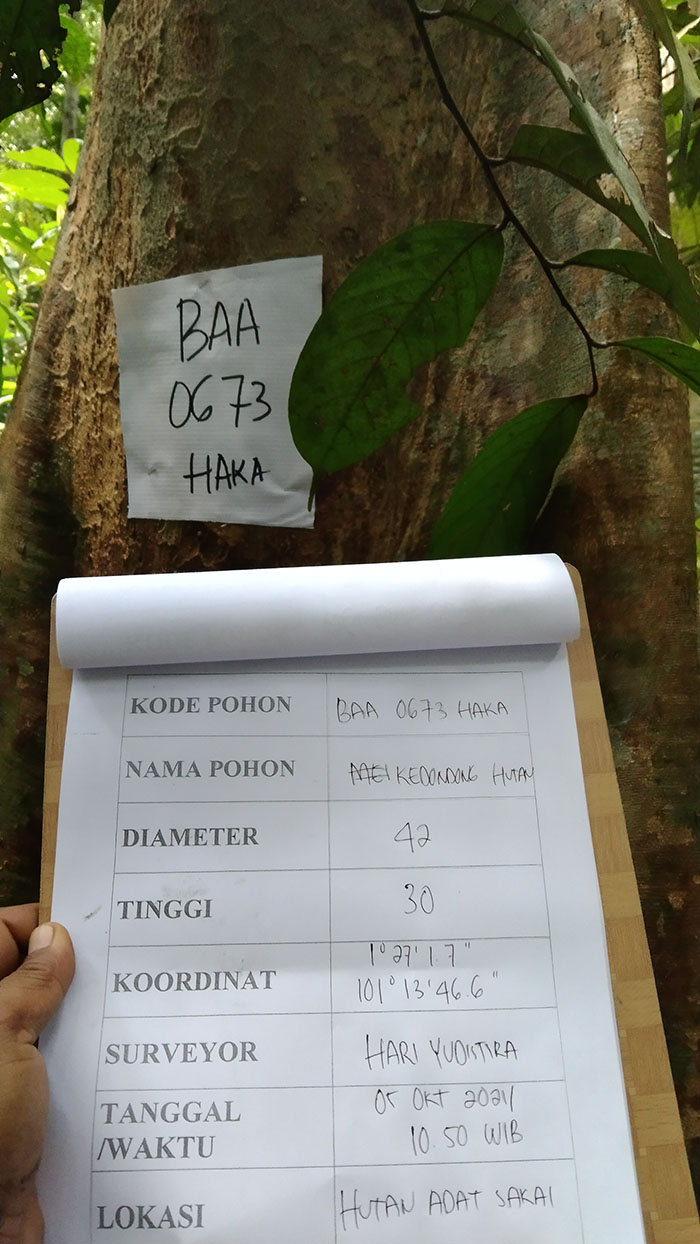 BAA
0673
HAKA
KODE POHON BAA 0673 HAKA
NAMA POHON KEDONDONG HUTAN
DIAMETER 42
TINGGI 30
KOORDINAT 1° 27' 1.7"
101° 13' 46.6"
SURVEYOR HARI YUDISTIRA
TANGGAL 05 OKT 2021/
/WAKTU 10.50 WIB
LOKASI HUTAN ADAT SAKAI